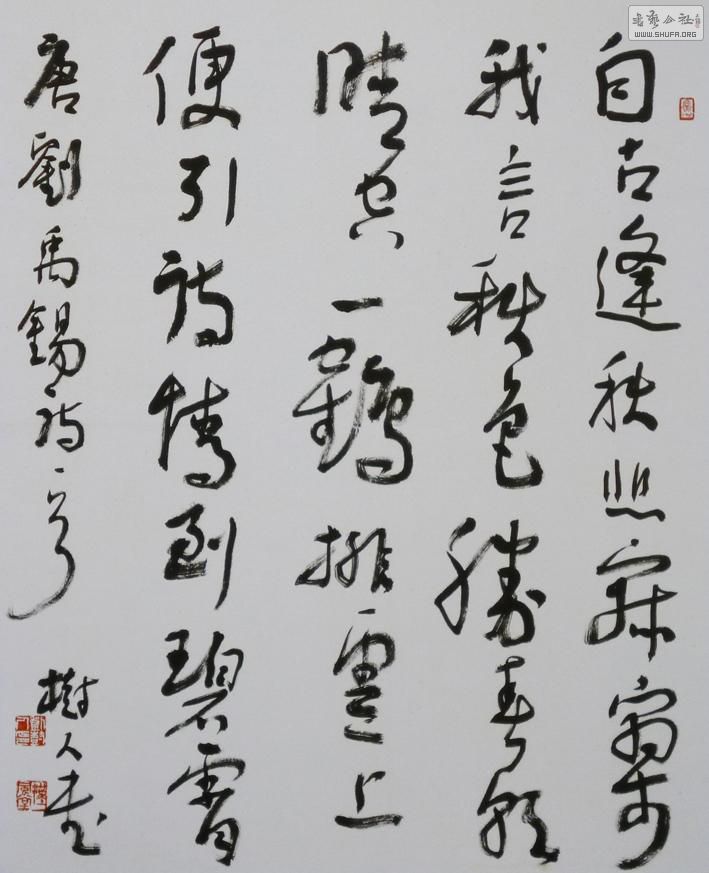 自古逢秋悲寂寥
我言秋色勝春朝
晴空一鶴排雲上
便引詩情到碧霄
唐劉禹錫詩一首
樹人書
書藝公社
WWW.SHUFA.ORG